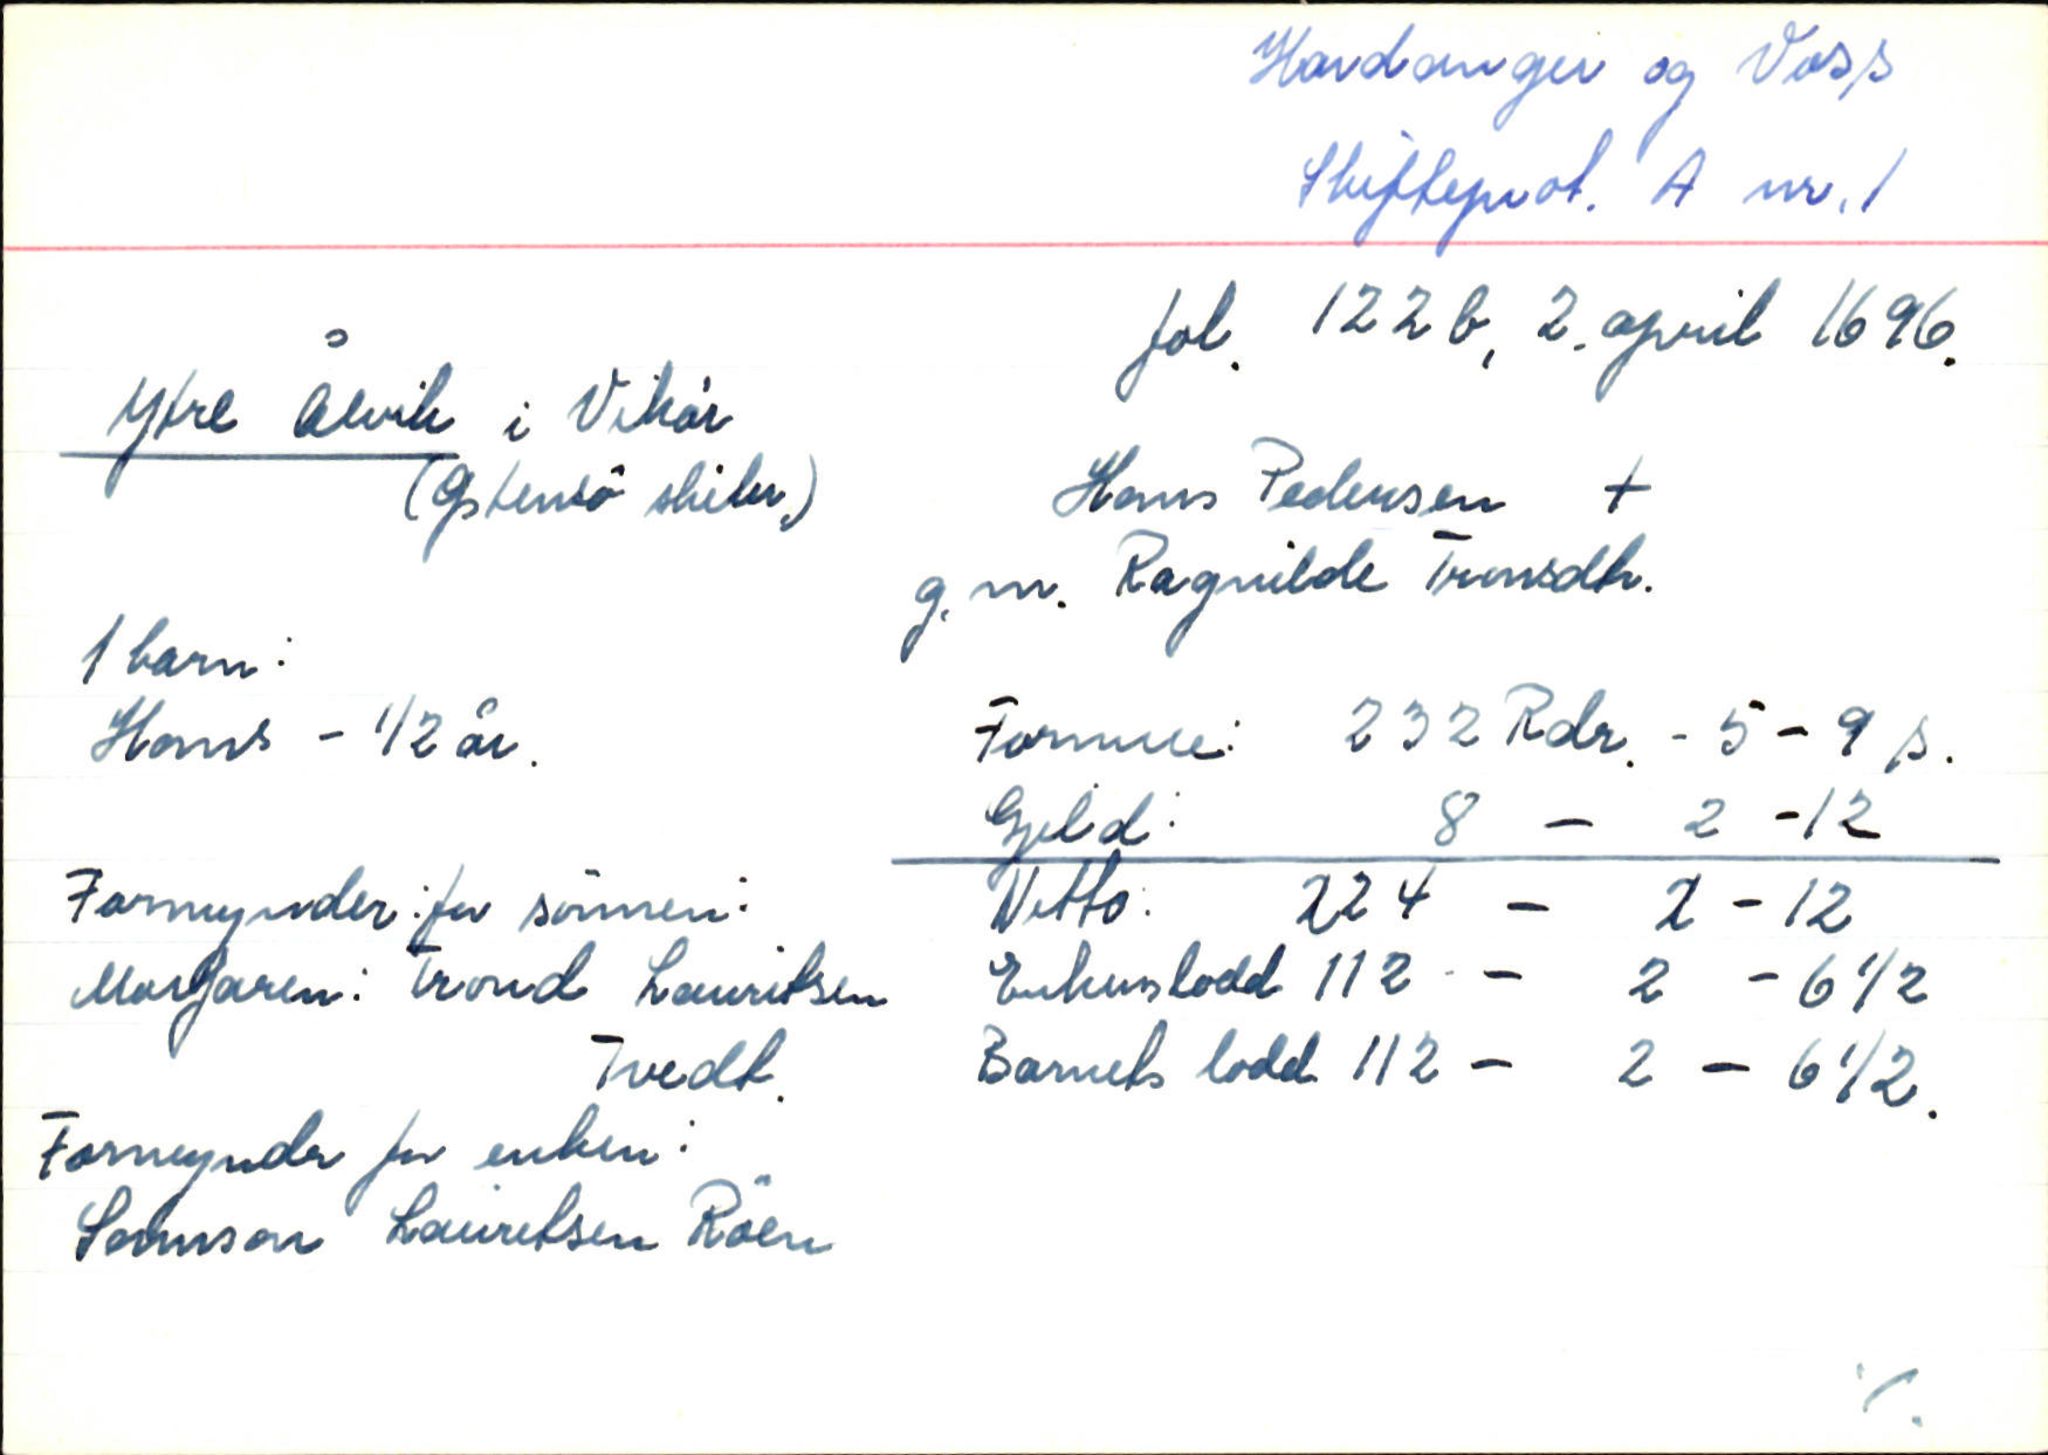 Hardanger og Voss
Skifteprot. A nr. 1
fol. 122b, 2. april 1696.
Ytre Ålvik i Vikør
(Østensö skibr.)
Hans Pedersen +
g. m. Ragnilde Tronsdtr.
1 barn:
Hans - 1/2 år.
Formue: 232 Rdr. - 5 - 9 s.
Gjeld: 8 - 2 - 12
Netto: 224 - 2 - 12
Enkens lodd 112 - 2 - 6 1/2
Barnets lodd 112 - 2 - 6 1/2.
Formynder for sönnen:
Morfaren: Trond Lauritsen
Tvedt.
Formynder for enken:
Samson Lauritsen Röen